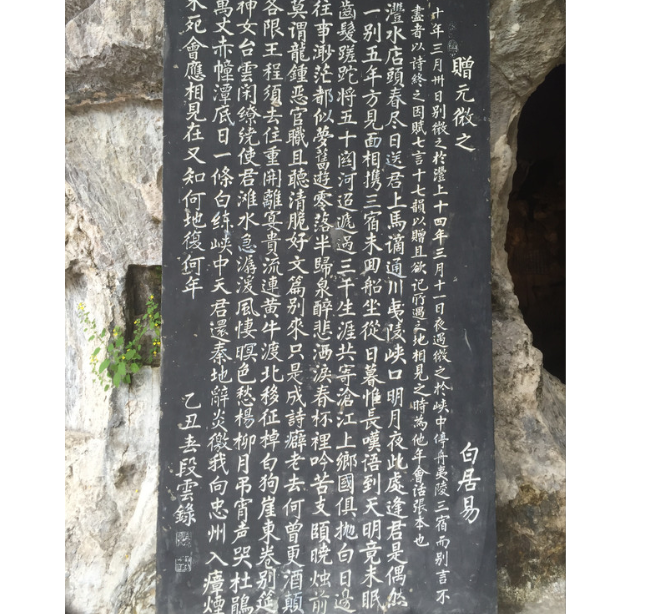 贈元微之
白居易
十年三月卅日別微之於灃上十四年三月十一日夜遇微之於峽中停舟夷陵三宿而別言不
盡者以诗終之因賦七言十七韻以贈且欲记所遇之地相見之時為他年會话張本也
灃水店頭春尽日送君上馬謫通川夷陵峽口明月夜此處逢君是偶然
一别五年方見面相携三宿未回船坐從日暮惟長嘆语到天明竟未眠
齒髮蹉跎將五十関河迢遞過三千生涯共寄滄江上鄉國俱抛白日邊
往事渺茫都似夢舊遊零落半歸泉醉悲洒淚春杯裡吟苦支頤曉烛前
莫谓龍鍾惡官職且聽清脆好文篇别來只是成詩癖老去何曾更酒顛
各限王程須去住重開離宴貴流連黄牛渡北移征棹白狗崖東卷别筵
神女台雲闲繚繞使君滩水急潺湲風悽暝色愁楊柳月吊宵声哭杜鵑
萬丈赤幢潭底日一條白练峽中天君還秦地辭炎徼我向忠州入瘴煙
未死會應相見在又知何地復何年
乙丑春段雲錄